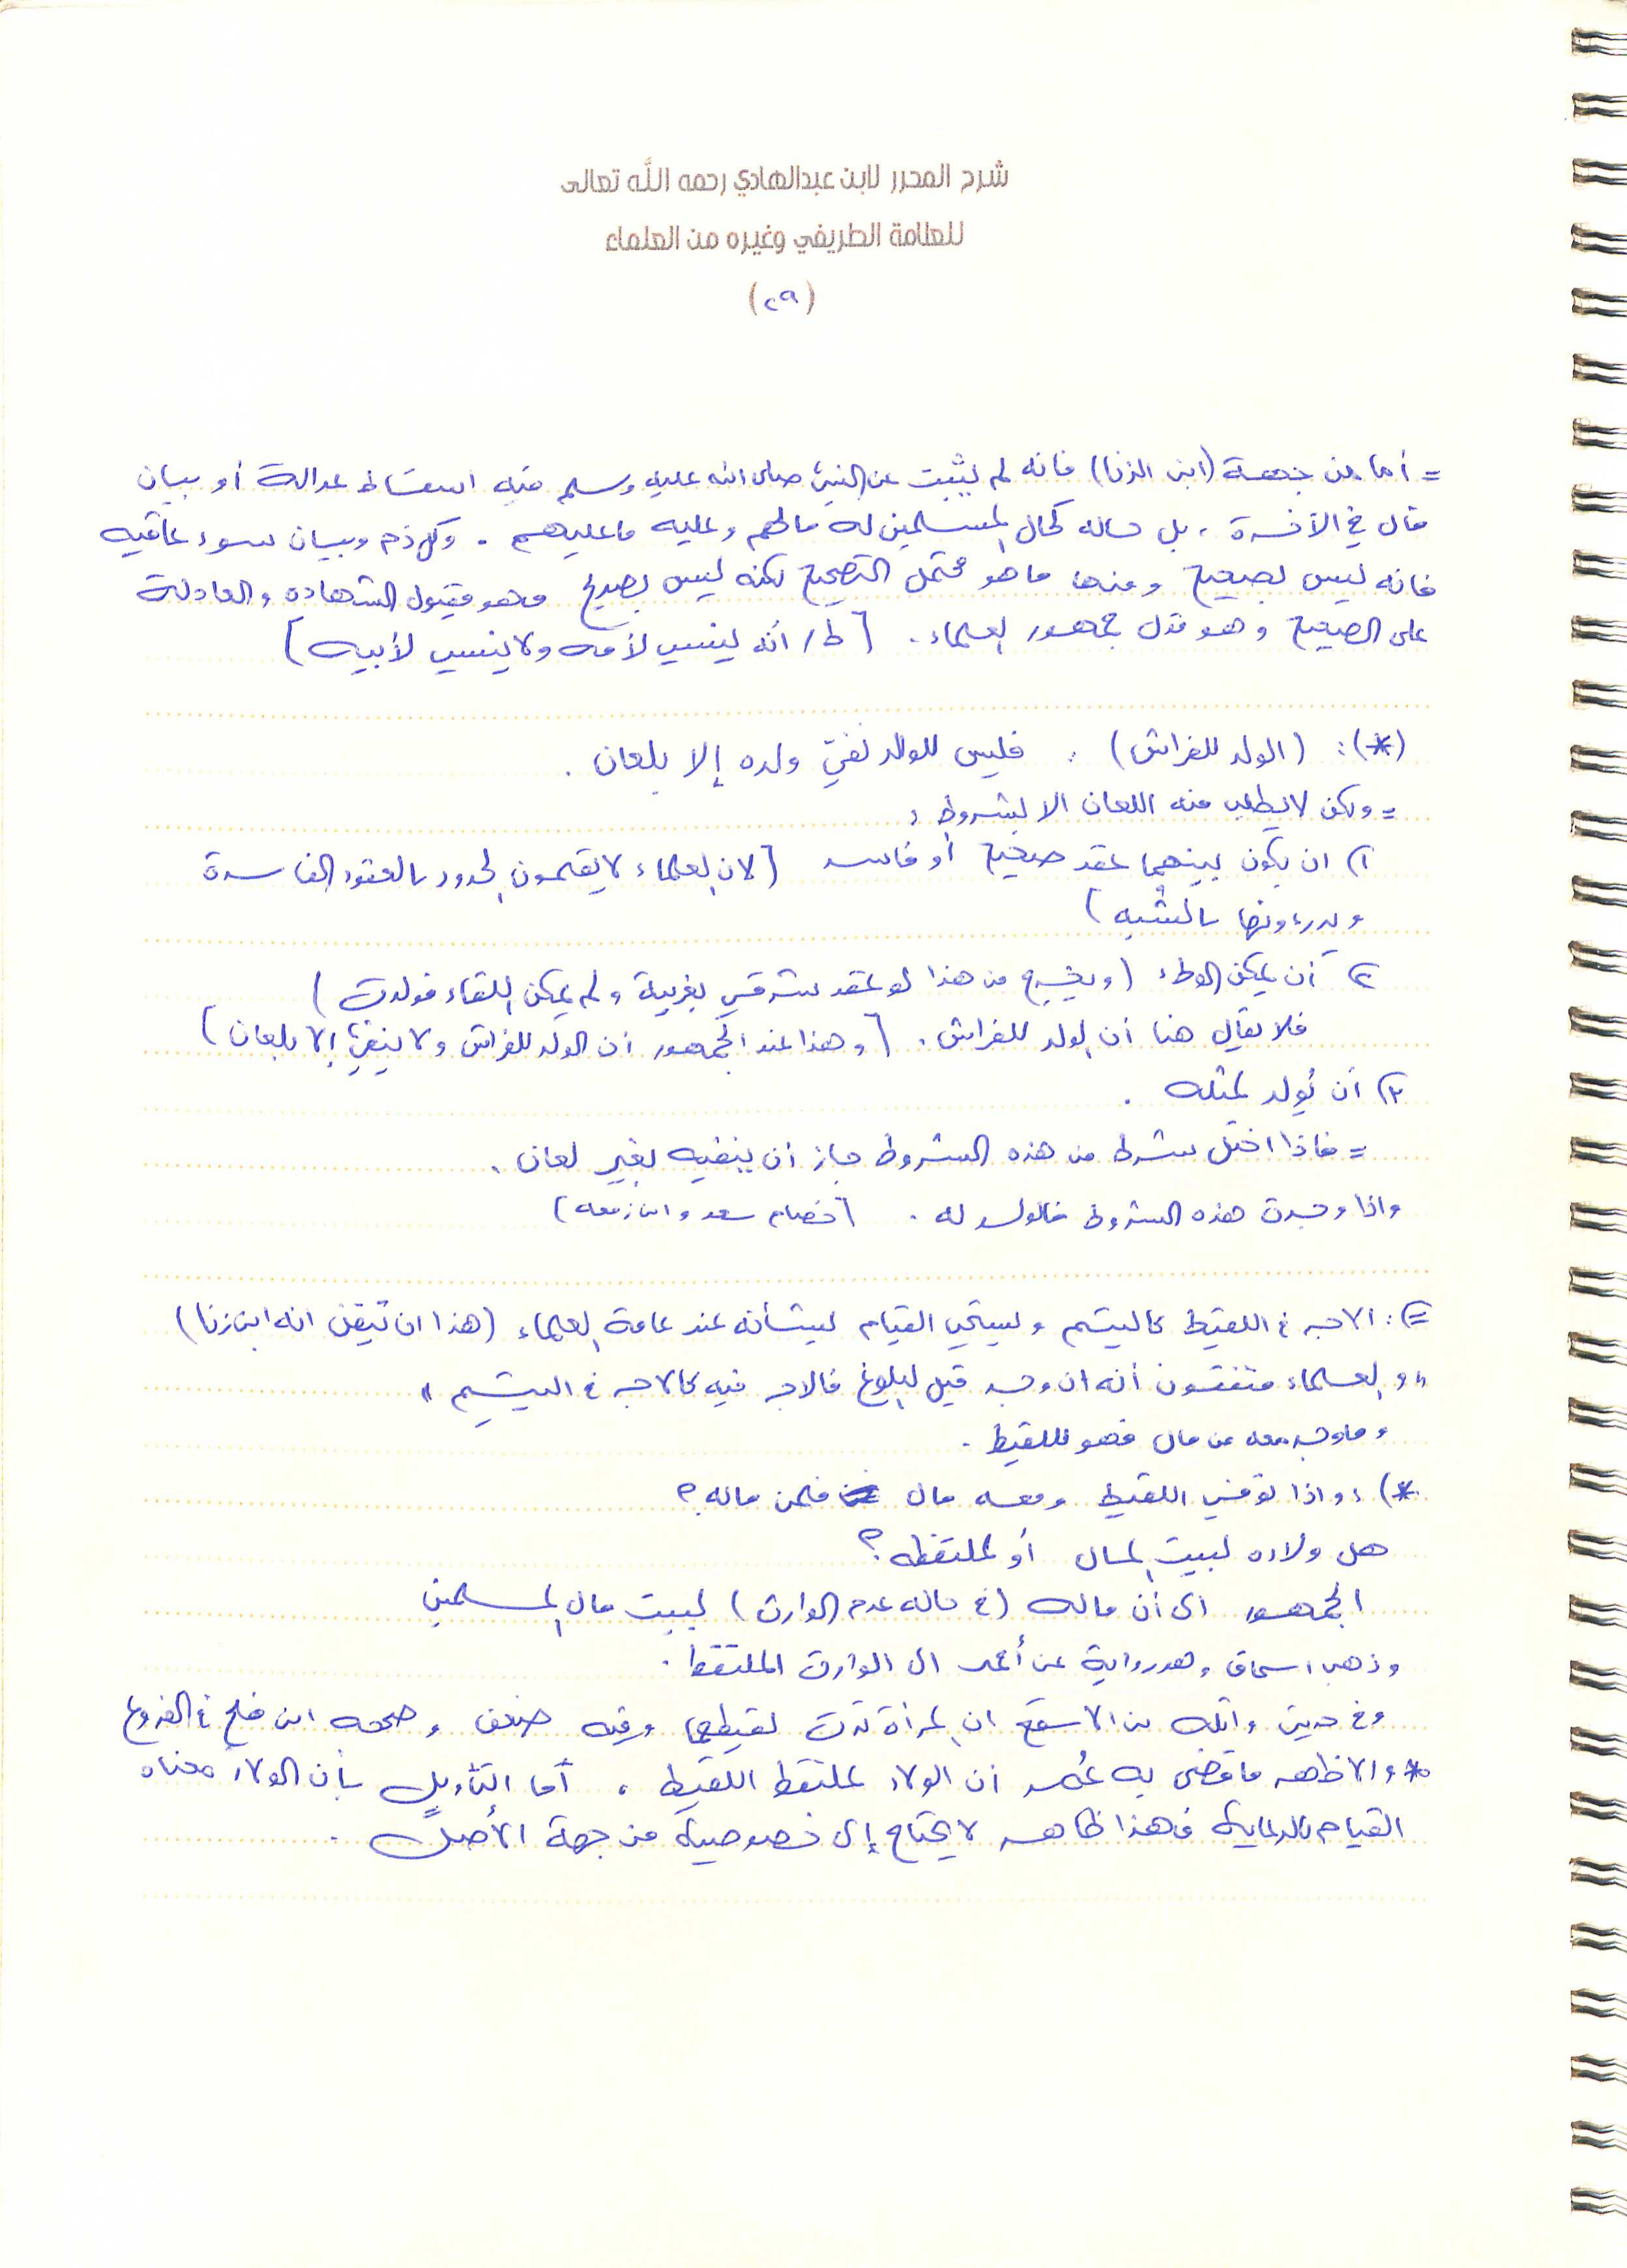 شرح المحرر لابن عبدالهادي رحمه الله تعالى
للعلامة الطريفي وغيره من العلماء
(٢٩)
= أما من جهة (ابن الزنا) فانه لم يثبت عن النبي صلى الله عليه وسلم فيه اسقاط عدالة أو بيان
مآل في الآخرة، بل حاله كحال المسلمين له مالهم وعليه ما عليهم. وكل ذم وبيان سوء عاقبه
فانه ليس بصحيح ومنها ما هو محتمل التصحيح لكنه ليس بصريح فهو مقبول الشهاده والعدالة
على الصحيح وهو قول جمهور العلماء. [ط/ أنه ينسب لأمه ولا ينسب لأبيه]
(*): (الولد للفراش) : فليس للوالد نفي ولده إلا بلعان.
= ولكن لا يطلب منه اللعان الا بشروط:
١) ان يكون بينهما عقد صحيح أو فاسد [لان العلماء لا يقيمون الحدود بالعقود الفاسدة
ويدرءونها بالشبه]
٢) أن يمكن الوطء (ويخرج من هذا لو عقد مشرقي بغربية ولم يمكن اللقاء فولدت)
فلا يقال هنا أن الولد للفراش. [وهذا عند الجمهور أن الولد للفراش ولا ينفى إلا بلعان]
٣) أن يُولد لمثله.
= فاذا اختل شرط من هذه الشروط جاز أن ينفيه بغير لعان.
واذا وجدت هذه الشروط فالولد له. [خصام سعد وابن زمعه]
=): الاجر في اللقيط كاليتيم ويستحب القيام بشأنه عند عامة العلماء (هذا ان تيقن انه ابن زنا)
" والعلماء متفقون أنه ان وجد قبل البلوغ فالاجر فيه كالاجر في اليتيم "
وما وجد معه من مال فهو للقيط.
*): واذا توفي اللقيط ومعه مال فلمن ماله؟
هل ولاءه لبيت المال أو لملتقطه؟
الجمهور الى أن ماله (في حاله عدم الوارث) لبيت مال المسلمين
وذهب اسحاق وهو رواية عن أحمد الى الوارث الملتقط.
وفي حديث واثلة بن الاسقع ان المرأة ترث لقيطها وفيه ضعف وصححه ابن مفلح في الفروع
* والاظهر ما قضى به عُمر أن الولاء لملتقط اللقيط، أما التأويل بأن الولاء معناه
القيام بالرعاية فهذا ظاهر لا يحتاج إلى خصوصية من جهة الأصل.